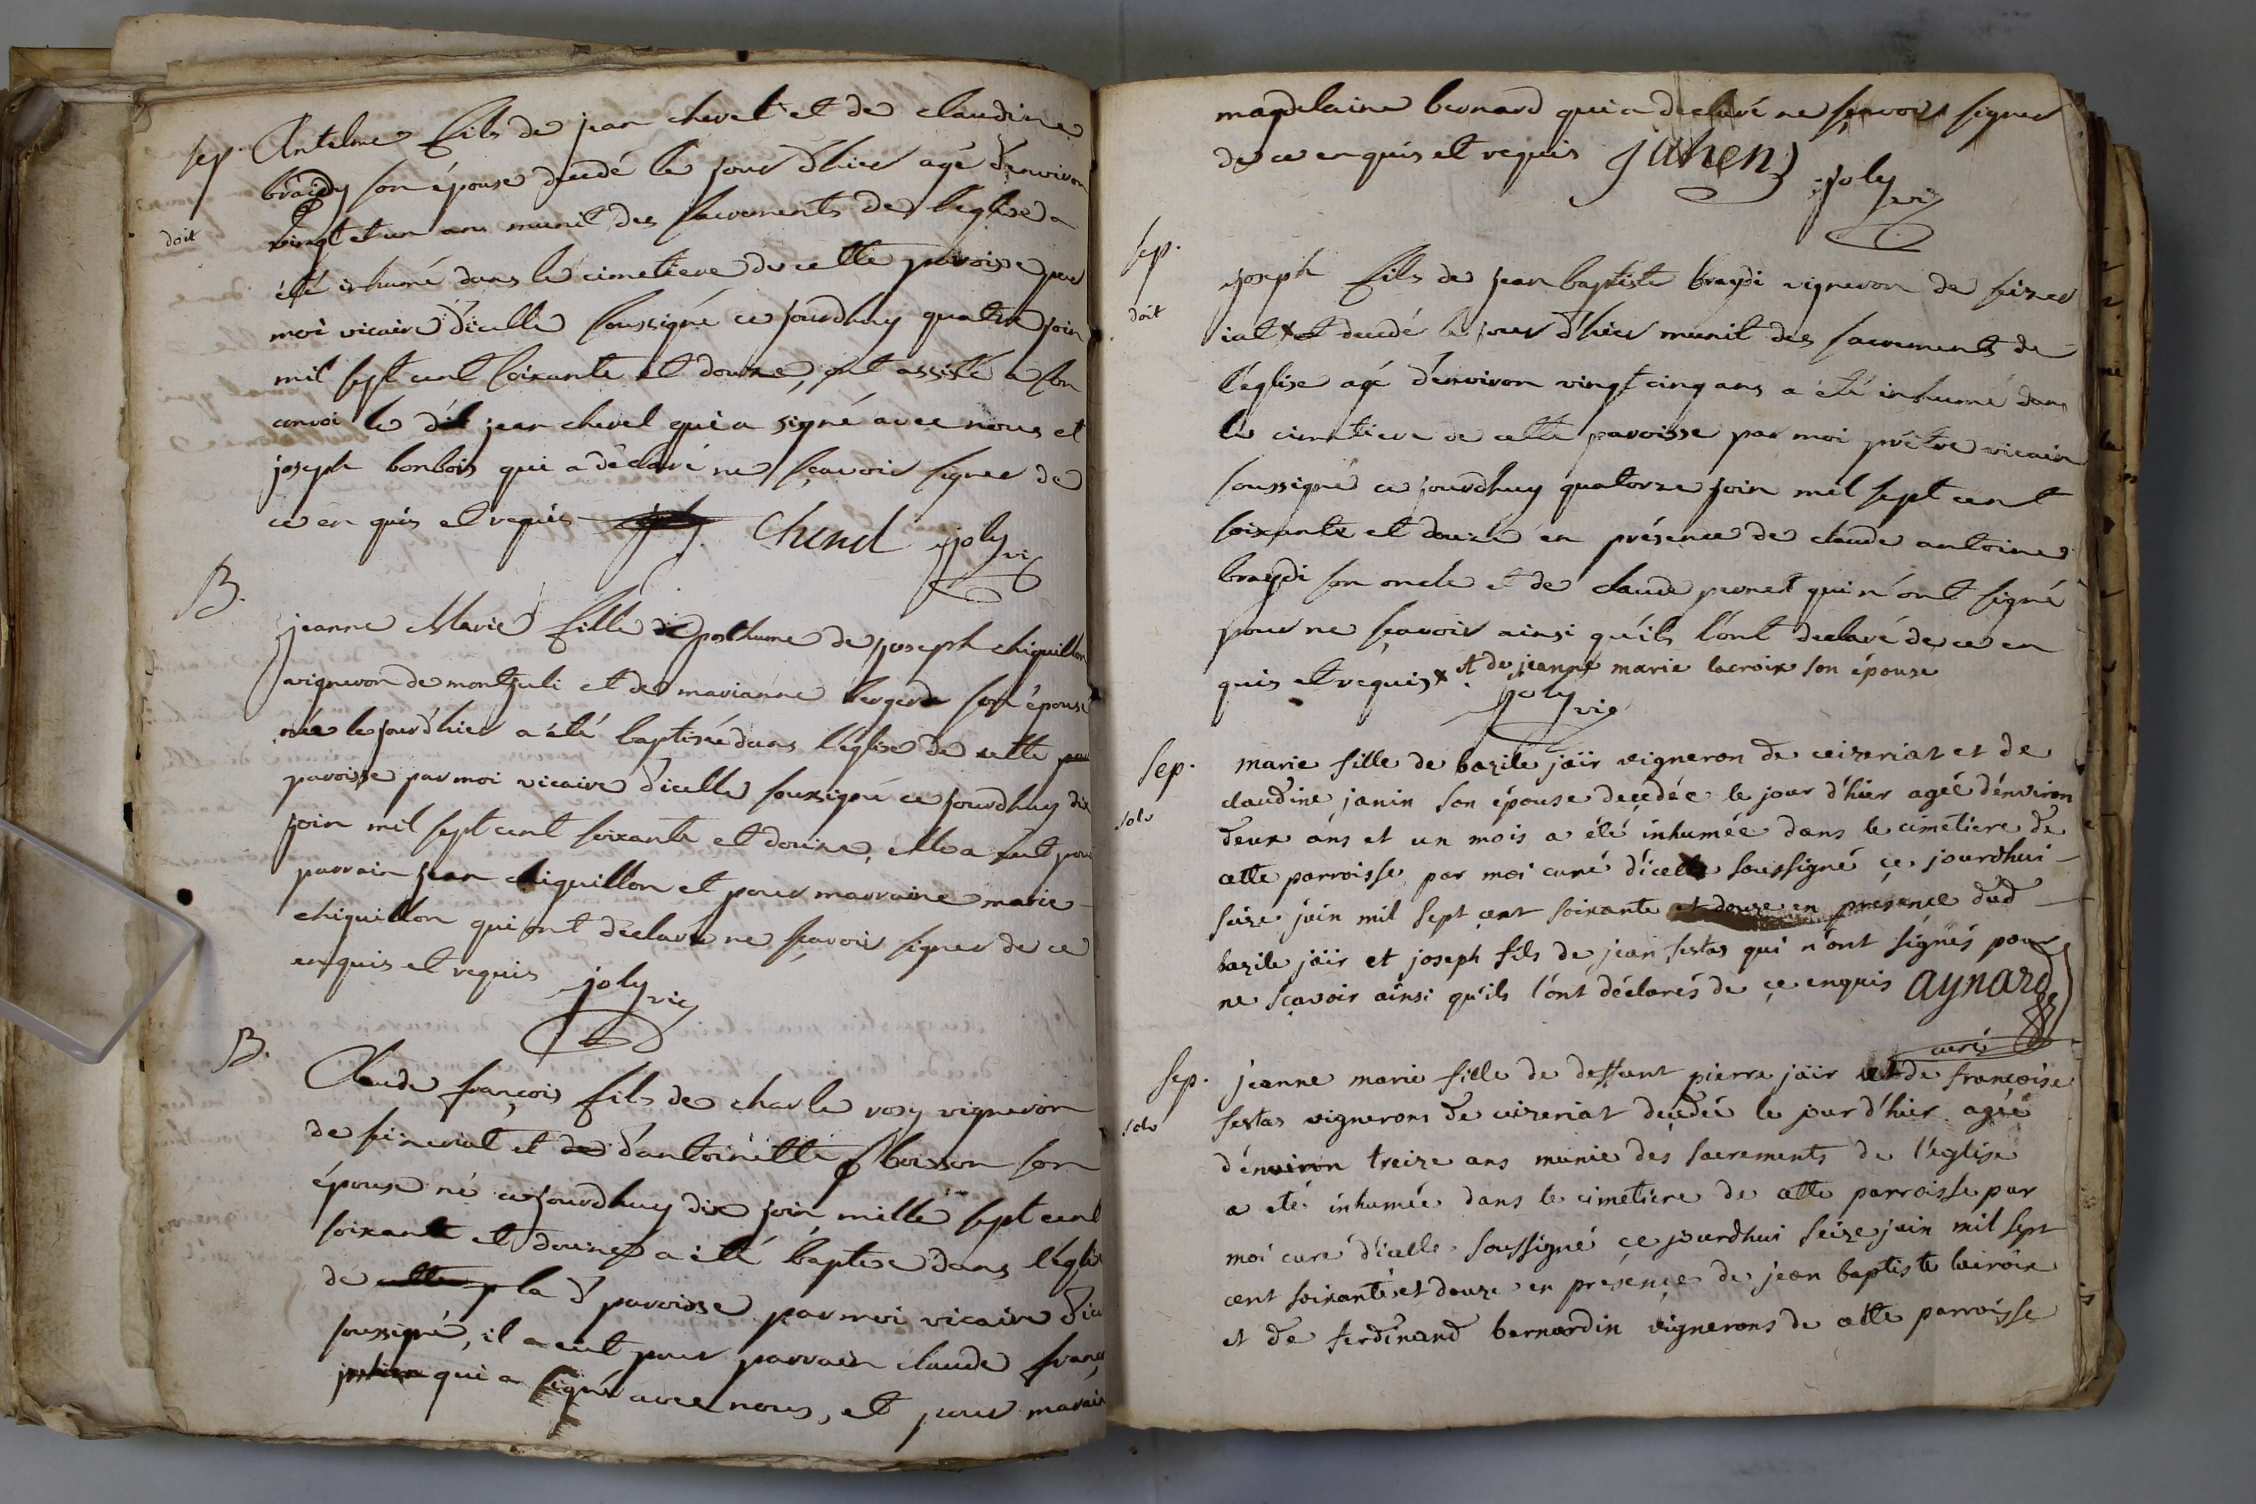 sep. Antelme fils de jean chevel et de claudine
braydy son épouse decedé le jour d'hier agé d'environ
doit
vingt et un ans munit des sacrements de l'eglise a
été inhumé dans le cimetiere de cette paroisse par
moi vicaire d'icelle soussigné ce jourdhuy quatre join
mil sept cent soixante et douze, ont assisté a son
convoi le dit jean chevel qui a signé avec nous et
joseph bonbois qui a déclaré ne sçavoir signer de
ce en quis et requis Chevel joly vic
B.
jeanne Marie fille posthume de joseph chiquillon
vigneron de montjuli et de marianne bergere son épouse
née le jour d'hier a été baptisée dans l'église de cette
paroisse par moi vicaire d'icelle soussigné ce jourdhuy dix
join mil sept cent soixante et douze, elle a eut pour
parrain jean chiquillon et pour marraine marie
chiquillon qui ont déclaré ne sçavoir signer de ce
enquis et requis joly vic
B.
Claude françois fils de charle rosy vigneron
de siseriat et d'antoinette boisson son
épouse né ce jourdhuy dix join mille sept cent
soixante et douze a été baptisé dans l'église
de la d paroisse par moi vicaire d'ice
soussigné, il a eut pour parrain claude franç
qui a signé avec nous, et pour marain
magdelaine bernard qui a declaré ne sçavoir signer
de ce enquis et requis jahen joly vic
sep.
joseph fils de jean baptiste braydi vigneron de seizer
doit
iat x decedé le jour d'hier munit des sacrements de
l'église agé d'environ vingt cinq ans a été inhumé dans
le cimetiere de cette paroisse par moi prêtre vicaire
soussigné ce jourdhuy quatorze join mil sept cent
soixante et douze en présence de claude antoine
braydi son oncle et de claude perret qui n'ont signé
pour ne sçavoir ainsi qu'ils l'ont declaré de ce en
quis et requis x et de jeanne marie lacroix son épouse
joly vic
Sep. marie fille de bazile jäir vigneron de ceizeriat et de
claudine janin son épouse decedée le jour d'hier agée d'environ
solv
deux ans et un mois a été inhumée dans le cimetiere de
cette parroisse par moi curé d'icelle soussigné ce jourdhui
seize juin mil sept cent soixante et douze en présence dud
bazile jäir et joseph fils de jean festas qui n'ont signés pour
ne sçavoir ainsi qu'ils l'ont déclarés de ce enquis aynard
curé
Sep. jeanne marie fille de deffunt pierre jäir et de françoise
solv
festas vignerons de ceizeriat decedée le jour d'hier agée
d'environ treize ans munie des sacrements de l'église
a été inhumée dans le cimetiere de cette parroisse par
moi curé d'icelle soussigné ce jourdhui seize juin mil sept
cent soixante et douze en présence de jean baptiste
et de ferdinand bernardin vignerons de cette parroisse